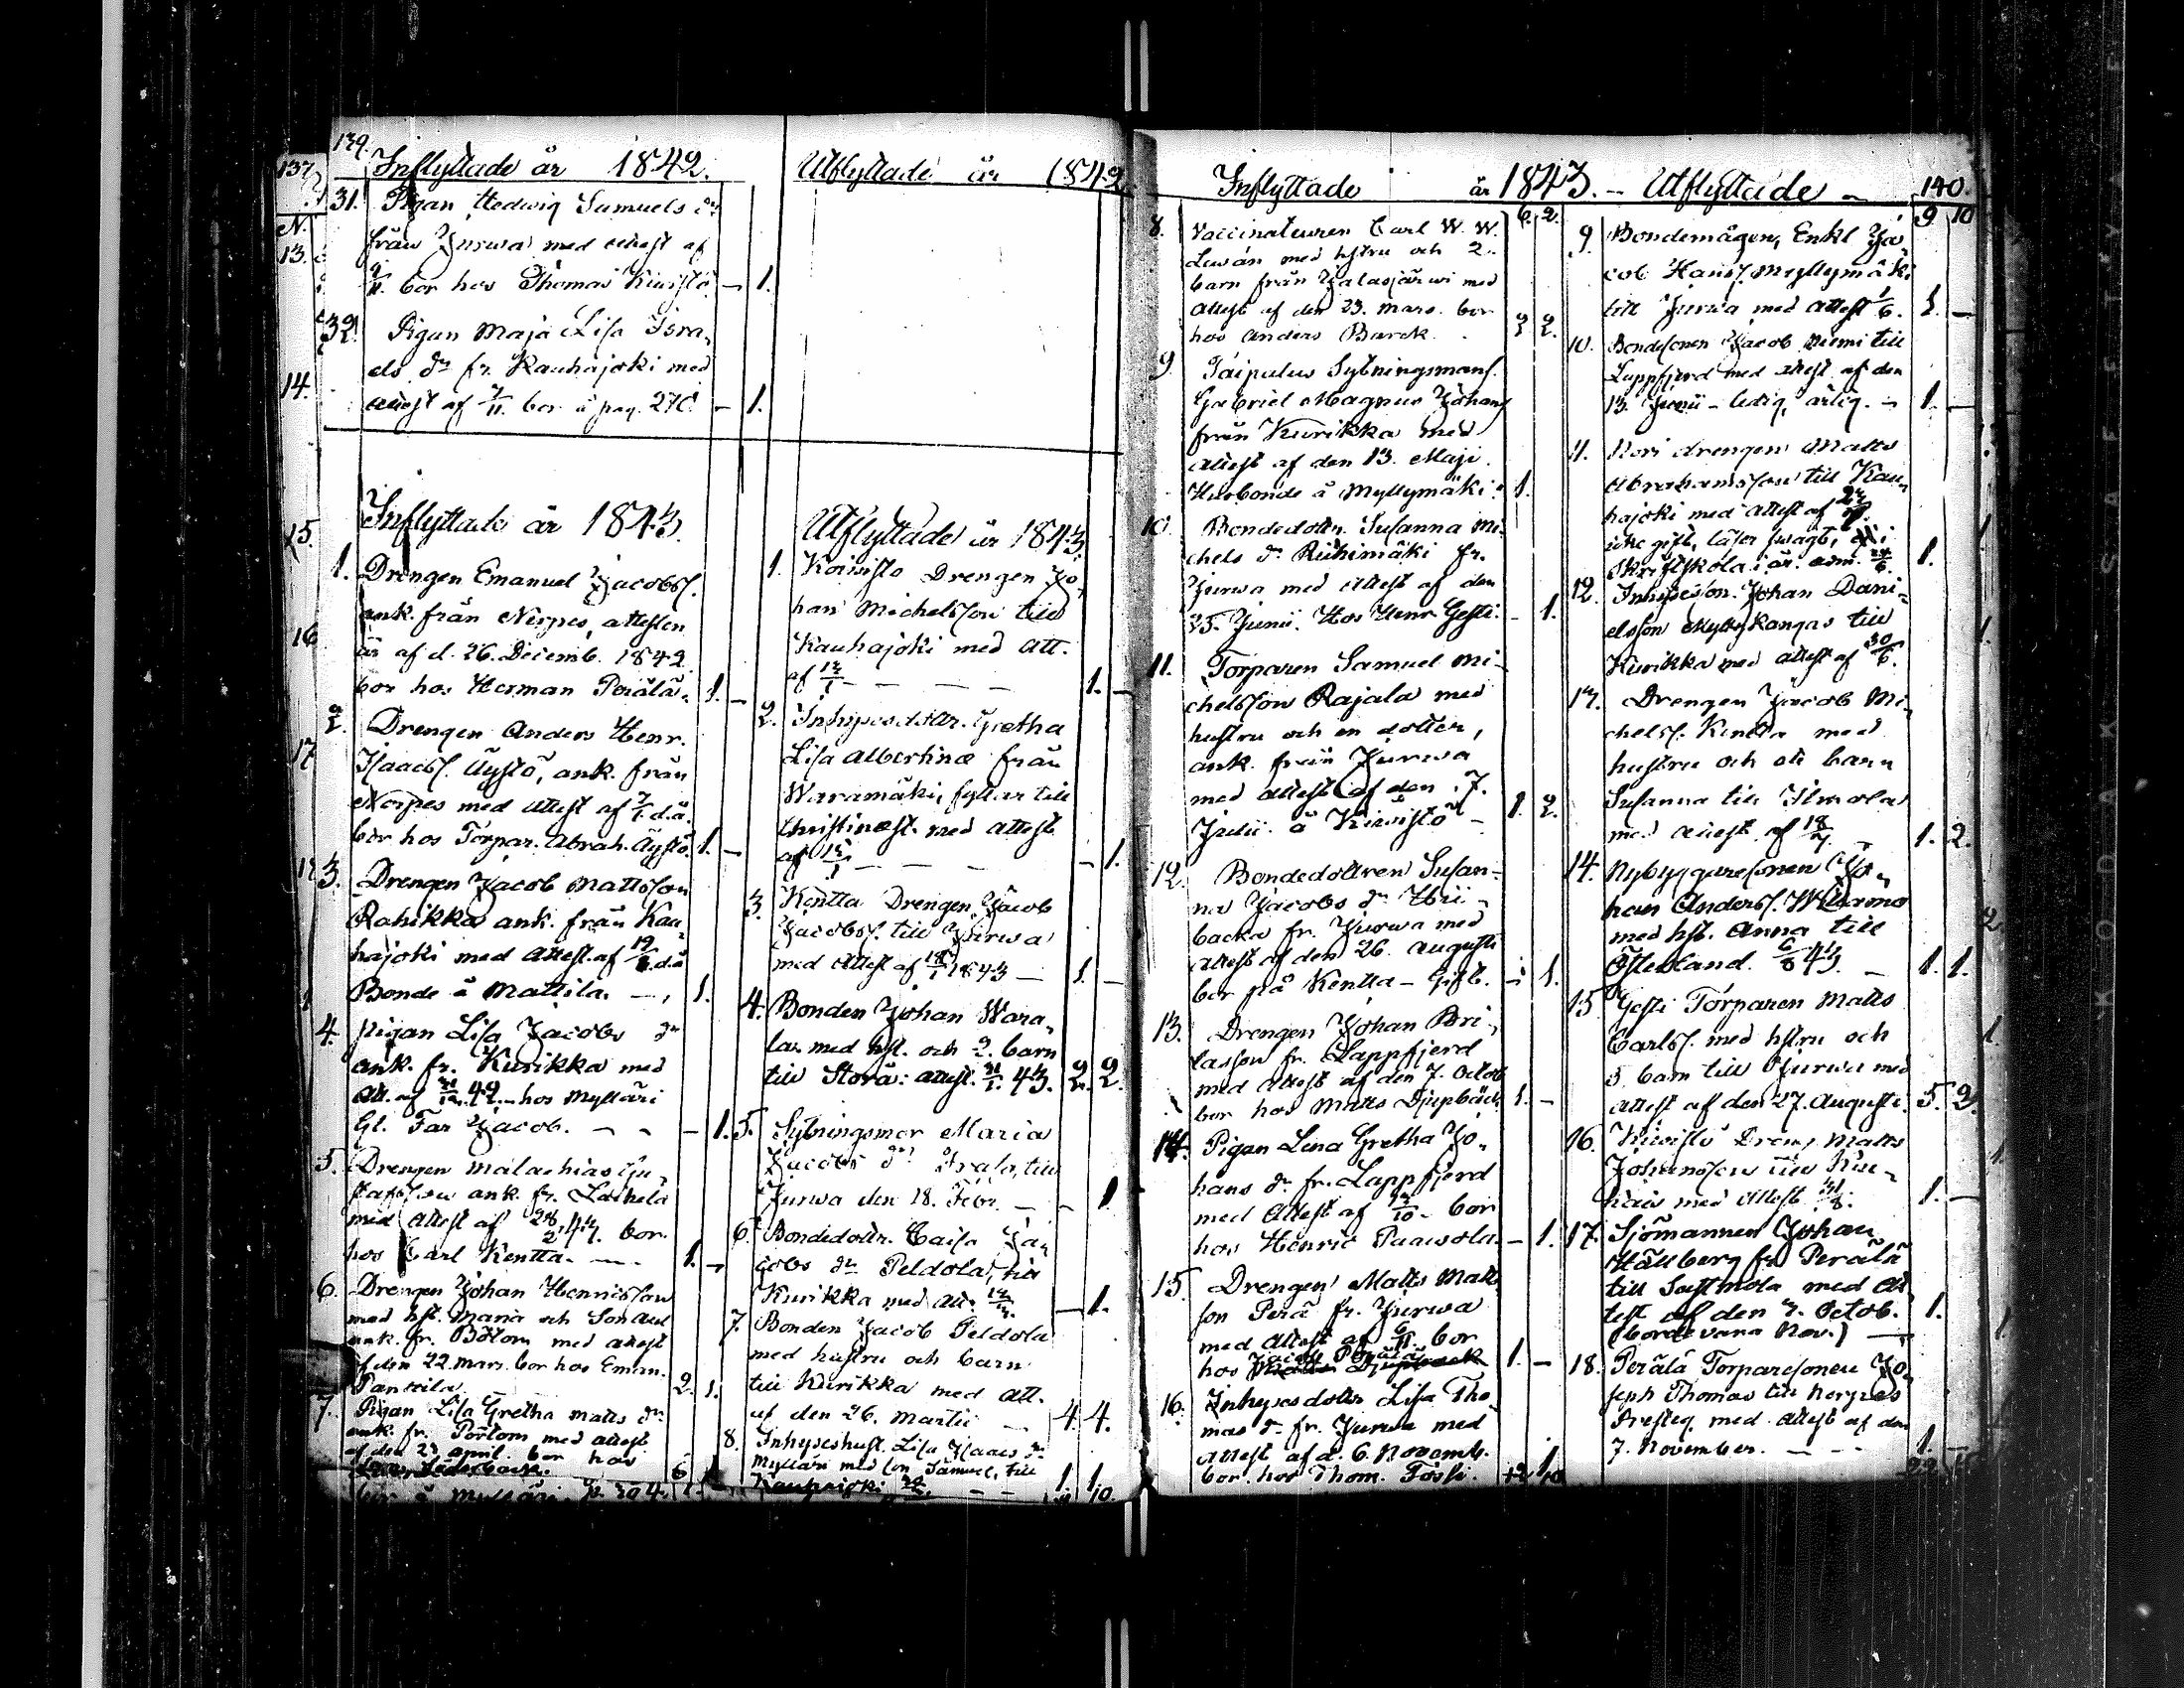 139.
Inflyttade år 1842.
31. Pigan Hedwig Samuels dr
från Jurwa med attest af
9/11. bor hos Thomas Kiwistö. — 1.
32. Pigan Maja Lisa Isra-
els dr fr. Kauhajoki med
attest af 7/11. bor å pag. 270. — 1.
Inflyttade år 1843.
1. Drengen Emanuel Jacobss.
ank. från Nerpes, attesten
är af d. 26. Decemb. 1842
bor hos Herman Perälä. 1. —
2. Drengen Anders Henr.
Isaacss. Äystö, ank. från
Nerpes med attest af 7/1. d.å.
bor hos Torpar. Abrah. Äystö. 1. —
3. Drengen Jacob Mattsson
Rahikka ank. från Kau-
hajoki med attest af 19/1 d.å
Bonde å Mattila. — 1.
4. Pigan Lisa Jacobs dr
ank. fr. Kurikka med
att. af 31/12. 42. hos Mylläri
Gl. Far Jacob. — — 1.
5. Drengen Malachias Gu-
stafsson ank. fr. Laihela
med attest af 28/2 43. bor
hos Carl Kentta. — 1. —
6. Drengen Johan Hennisson
med hst. Maria och Son
ank. fr. Bötom med attest
af den 22. mars. bor hos Eman.
Panttila. 2. 1.
7. Pigan Lisa Gretha Matts dr
ank. fr. Pörtom med attest
af den 23 april bor hos
bor å Mylläri p. 304.
Utflyttade år 1842
Utflyttade år 1843.
1. Koiwisto Drengen Jo-
han Michelsson till
Kauhajoki med att.
af 12/1 — — — 1. —
2. Inhysesdottr. Gretha
Lisa Albertina från
Waramäki, flyttar till
Christinæst. med attest
af 15/1 — — — 1.
3. Kentta Drengen Jacob
Jacobss. till Jurwa
med attest af 18/1 1843 — 1. —
4. Bonden Johan Wara-
la med hst. och 2. barn
till Storå: attest. 31/1. 43. 2. 2.
5. Sytningsmor Maria
Jacobs dr Irala, till
Jurwa den 18. Febr. — — 1
6. Bondedottr. Caisa Ja-
cobs dr Peldola, till
Kurikka med att. — 1.
7. Bonden Jacob Peldola
med hustru och barn
till Kurikka med att.
af den 26. Martii — 4. 4.
8. Inhyseshust. Lisa Isaacs dr
Mylläri med son Samuel, till
Kauhajoki — — 1. 1.
10.
Inflyttade år 1843. — Utflyttade — 140.
6. 2.
8. Vaccinateuren Carl W. W.
Lewån med hstru och 2.
barn från Jalasjärwi med
attest af den 23. mars. bor
hos Anders Barck. 2 2.
9. Taipalus Sytningsmans.
Gabriel Magnus Johans
från Kurikka med
attest af den 13. Maji.
Husbonde å Myllymäki. 1.
10. Bondedottr. Susanna Mi-
chels dr Riihimäki fr.
Jurwa med attest af den
25. Junii. Hos Henr. Gesti. — 1.
11. Torparen Samuel Mi-
chelsson Rajala med
hustru och en dotter,
ank. från Jurwa
med attest af den 7.
Julii å Kiwistö — 1. 2.
12. Bondedottren Susan-
na Jacobs dr Hui-
backa fr. Jurwa med
attest af den 26. Augusti
bor på Kentta — Gift. — 1.
13. Drengen Johan Bri-
tasson fr. Lappfjerd
med attest af den 7. Octob
bor hos Matts Djupbäck 1. —
14. Pigan Lena Gretha Jo-
hans dr fr. Lappfjerd
med attest af bor
hos Henric Paawola. — 1.
15. Drengen Matts Matts
son Perä fr. Jurwa
med attest af 6/11 bor
hos Jacob Perälä 1. —
16. Inhysesdottr Lisa Tho
mas dr fr. Jurwa med
attest af d. 6. Novemb.
bor hos Thom. Fossi. 1
12 10
9 10
9. Bondemågen, Enkl. Ja-
cob Hanss. Myllymäki
till Jurwa med attest 1/6. 1. —
10. Bondesonen Jacob Niemi till
Lappfjerd med attest af den
13. Junii — ledig, ärlig. — 1. —
11. Nori drengen Matts
Abrahamsson till Kau-
hajoki med attest af
icke gift, läser swagt, i
skriftskola i år. adm. 24/6. 1.
12. Inhysesson. Johan Dani-
elsson Myllykangas till
Kurikka med attest af 30/6. 1.
13. Drengen Jacob Mi-
chelss. Kentta med
hustru och ett barn
Susanna till Ilmola
med attest af — 1. 2.
14. Nybyggaresonen Jo-
han Anderss.
med hst. Anna till
Österland. 6/8 43. — 1. 1.
15. Gesti Torparen Matts
Carlss. med hstru och
5 barn till Jurwa med
attest af den 27. Augusti. 5. 2.
16. Kiwistö Dreng Matts
Johansson till
med attest 31/8. 1. —
17. Sjömannen Johan
Hällberg fr. Perälä
till Sastmola med at-
test af den 3. Octob. 1.
(borde vara Nov.) —
18. Perälä Torparesonen Jo-
seph Thomas till Nerpes
Presteg. med attest af den
7. November. — — 1. —
22
137
N.
13.
14.
15.
16
17
KODAK SAFETY F